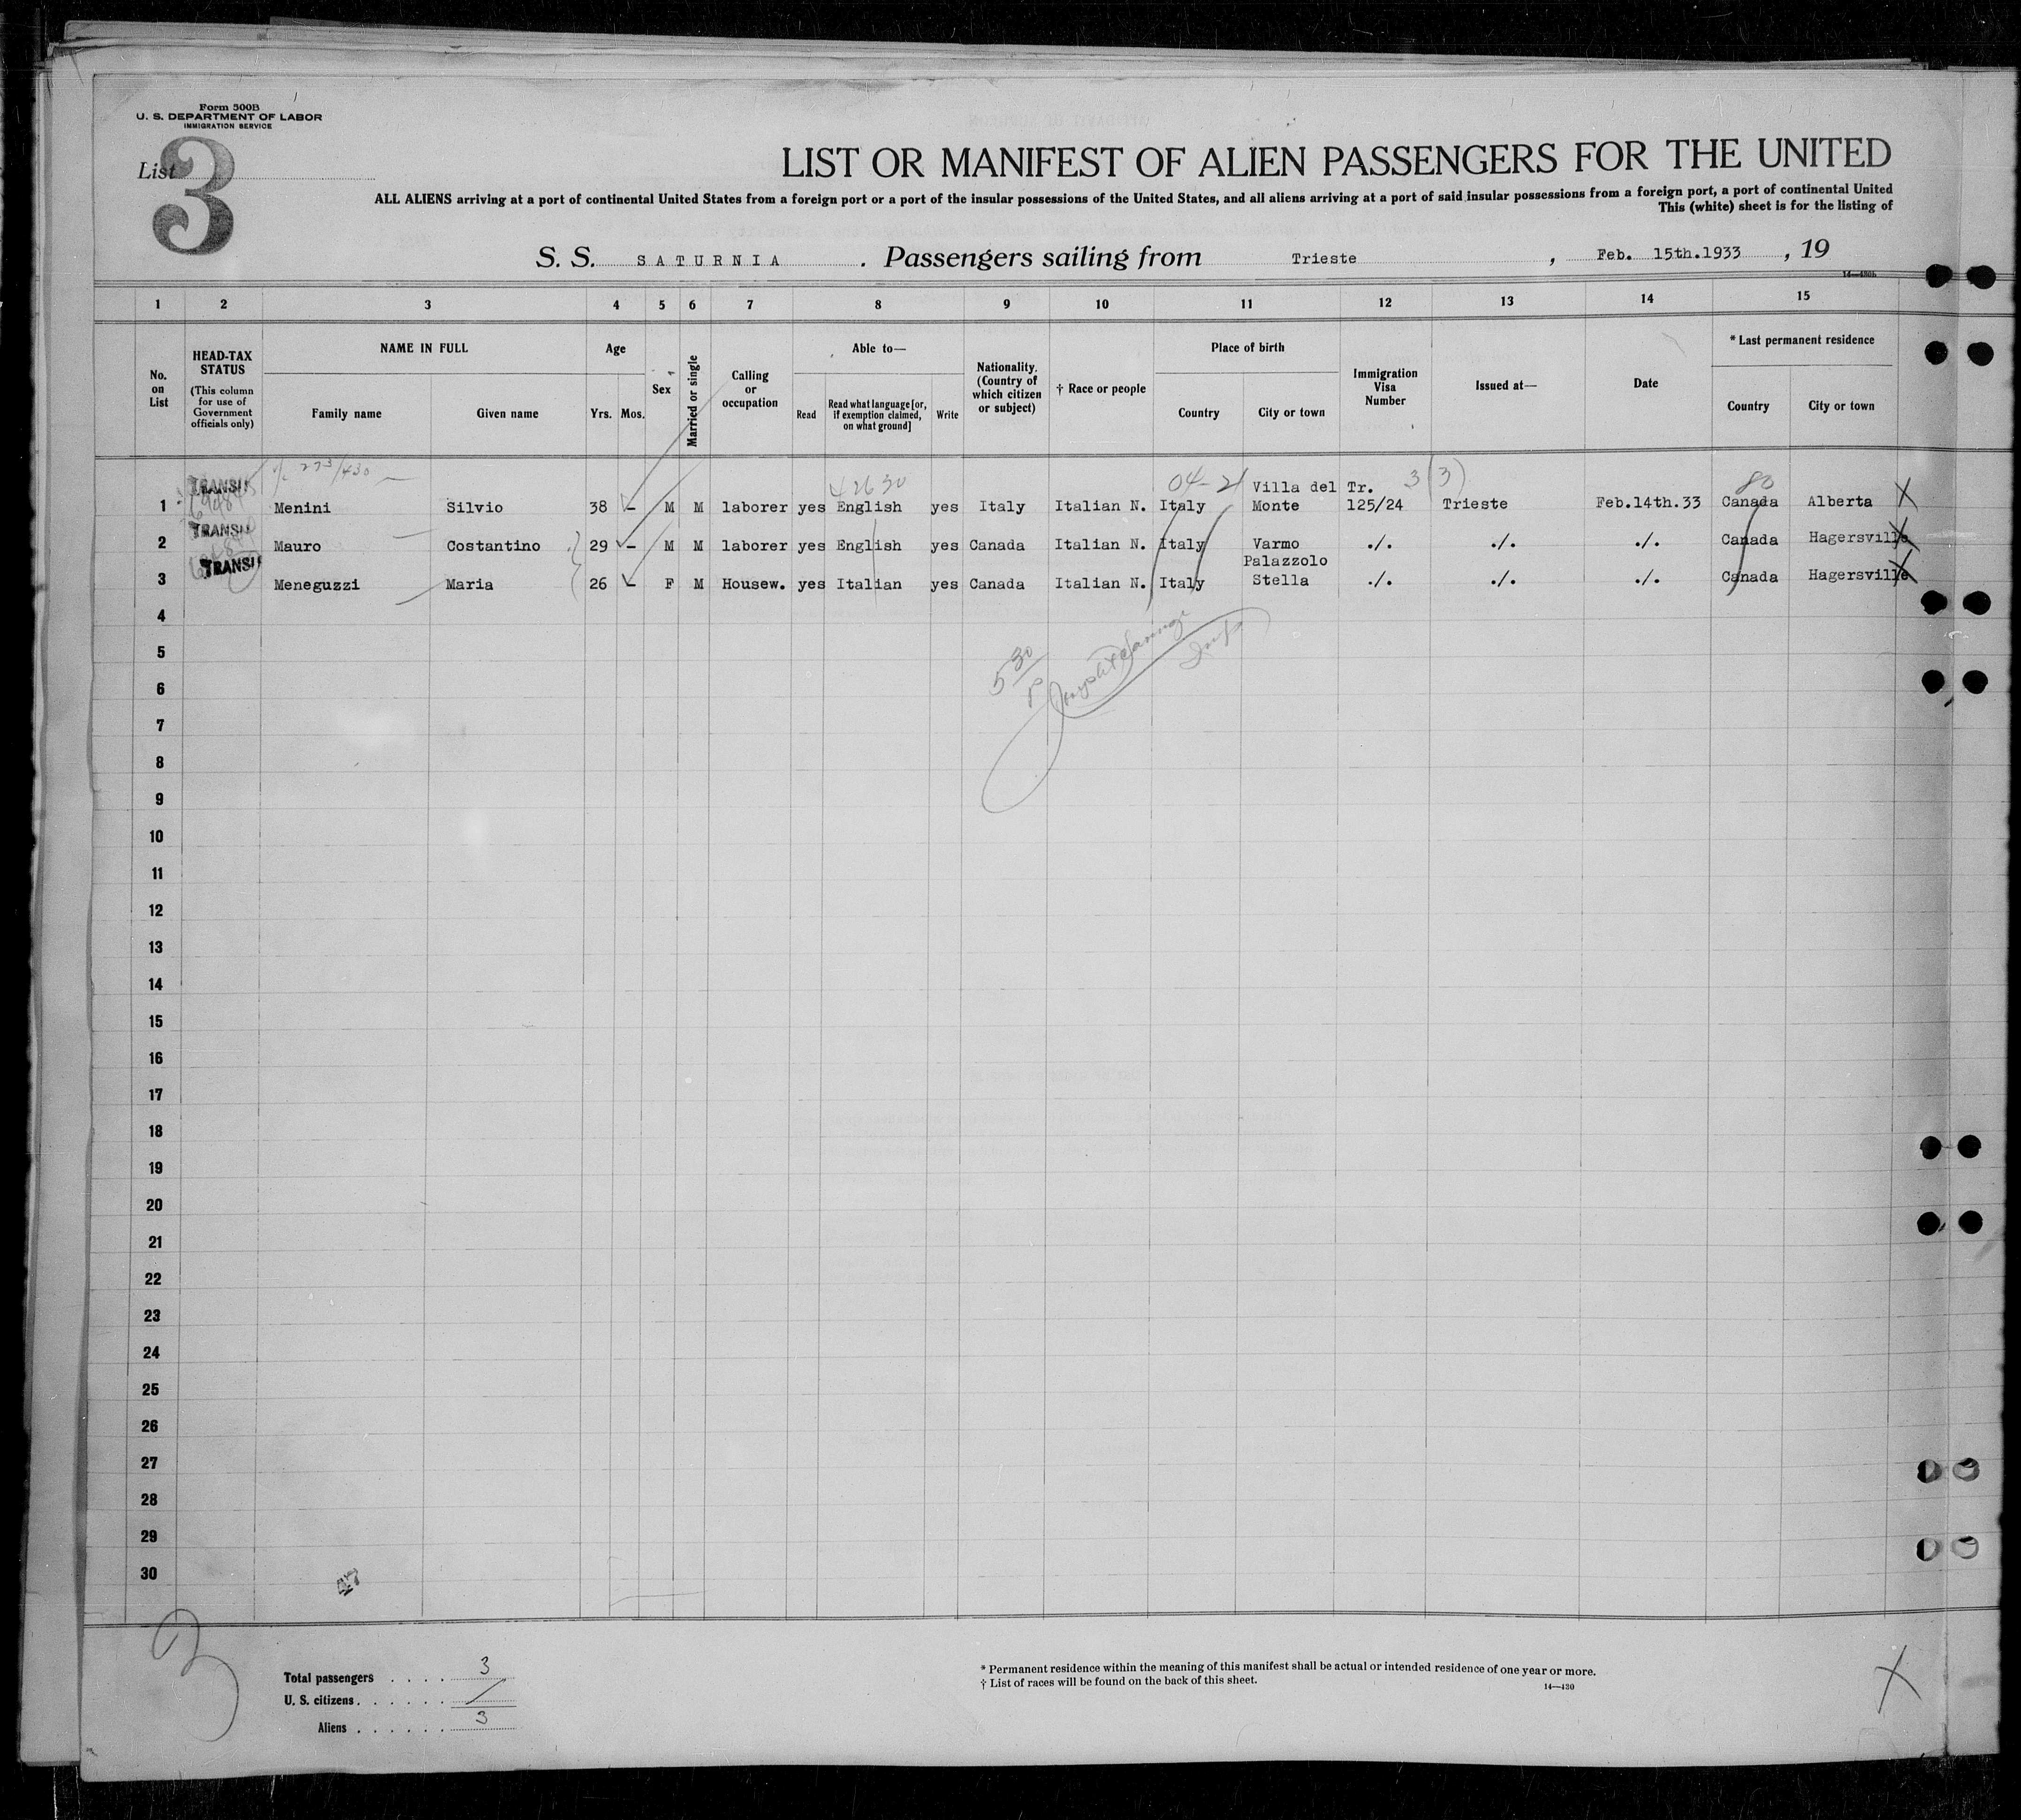 Form 500B
U. S. DEPARTMENT OF LABOR
IMMIGRATION SERVICE
List 3
LIST OR MANIFEST OF ALIEN PASSENGERS FOR THE UNITED
ALL ALIENS arriving at a port of continental United States from a foreign port or a port of the insular possessions of the United States, and all aliens arriving at a port of said insular possessions from a foreign port, a port of continental United
This (white) sheet is for the listing of
S. S. SATURNIA . Passengers sailing from Trieste , Feb. 15th.1933 , 19
14—430b
1 2 3 4 5 6 7 8 9 10 11 12 13 14 15
No. on List
HEAD-TAX STATUS (This column for use of Government officials only)
NAME IN FULL
Family name Given name
Age
Yrs. Mos.
Sex
Married or single
Calling or occupation
Able to—
Read
Read what language [or, if exemption claimed, on what ground]
Write
Nationality. (Country of which citizen or subject)
† Race or people
Place of birth
Country City or town
Immigration Visa Number
Issued at—
Date
* Last permanent residence
Country City or town
273/430
42630 04-21 3(3) 80
TRANSIT Villa del Tr.
1 Menini Silvio 38 - M M laborer yes English yes Italy Italian N. Italy Monte 125/24 Trieste Feb.14th.33 Canada Alberta X
TRANSIT
2 Mauro Costantino 29 - M M laborer yes English yes Canada Italian N. Italy Varmo ./. ./. ./. Canada Hagersville X
TRANSIT Palazzolo
3 Meneguzzi Maria 26 - F M Housew. yes Italian yes Canada Italian N. Italy Stella ./. ./. ./. Canada Hagersville X
4
5
5 30/P
6
7
8
9
10
11
12
13
14
15
16
17
18
19
20
21
22
23
24
25
26
27
28
29
30
47
3
Total passengers . . . . 3
U. S. citizens . . . . . . /
Aliens . . . . . . 3
* Permanent residence within the meaning of this manifest shall be actual or intended residence of one year or more.
† List of races will be found on the back of this sheet.
14—430
X